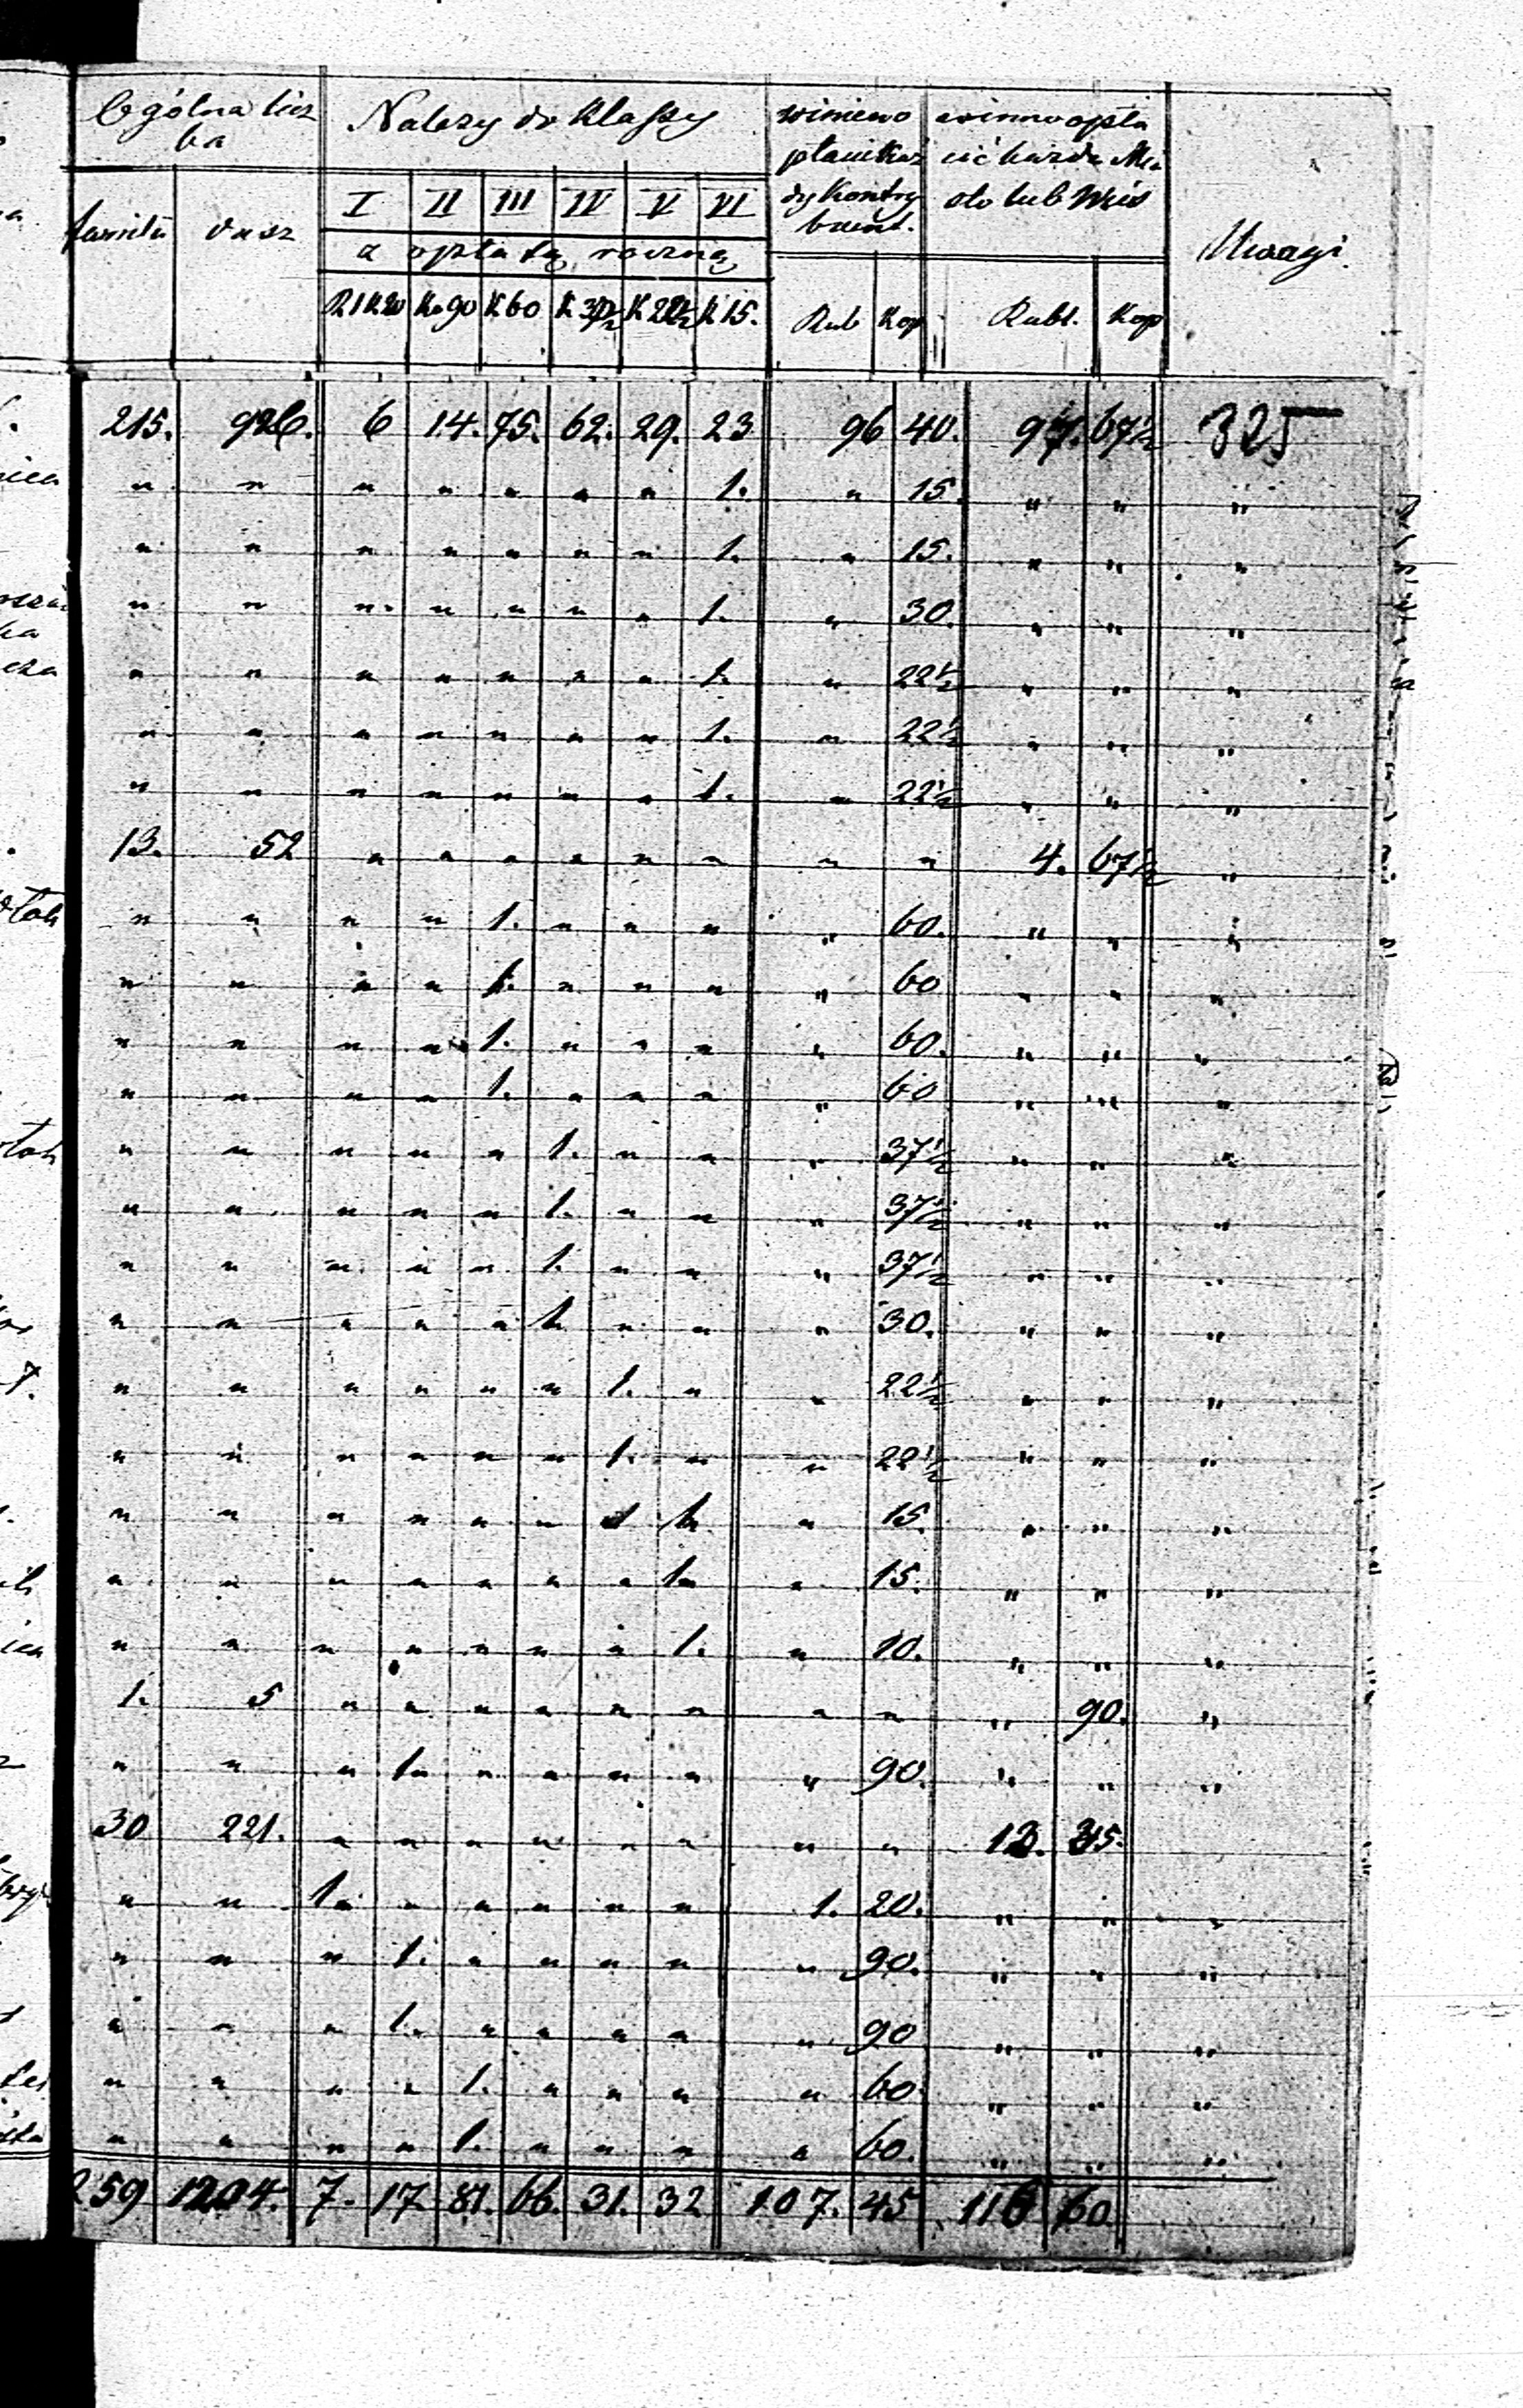 Ogólna licz
ba
Należy do Klassy
winien o
płacić każ
dy kontry
buent.
winno opła
cić każde Mia
sto lub Wieś
Uwagi.
familii dusz
I II III IV V VI
z opłatą roczną
R1 K20 K. 90 K 60 K 37½ K 22½ K 15.
Rub Kop Rubl. Kop
215. 926. 6 14. 75. 62. 29. 23 96 40. 97. 67½ 325
" " " " " " " 1. " 15. " " "
" " " " " " " 1. " 15. " " "
" " " " " " " 1. " 30. " " "
" " " " " " " 1. " 22½ " " "
" " " " " " " 1. " 22½ " " "
" " " " " " " 1. " 22½ " " "
13. 52 " " " " " " " " 4. 67½ "
" " " " 1. " " " " 60. " " "
" " " " 1. " " " " 60 " " "
" " " " 1. " " " " 60. " " "
" " " " 1. " " " " 60 " " "
" " " " " 1. " " " 37½ " " "
" " " " " 1. " " " 37½ " " "
" " " " " 1. " " " 37½ " " "
" " " " " 1. " " " 30. " " "
" " " " " " 1. " " 22½ " " "
" " " " " " 1. " " 22½ " " "
" " " " " " " 1. " 15. " " "
" " " " " " " 1. " 15. " " "
" " " " " " " 1. " 10. " " "
1. 5 " " " " " " " " " 90. "
" " " 1. " " " " " 90. " " "
30 221. " " " " " " " " 13. 35.
" " 1. " " " " " 1. 20. " " "
" " " 1. " " " " " 90. " " "
" " " 1. " " " " " 90 " " "
" " " " 1. " " " " 60 " " "
" " " " 1. " " " " 60. " " "
259 1204. 7. 17 81. 66. 31. 32 107. 45 116 60